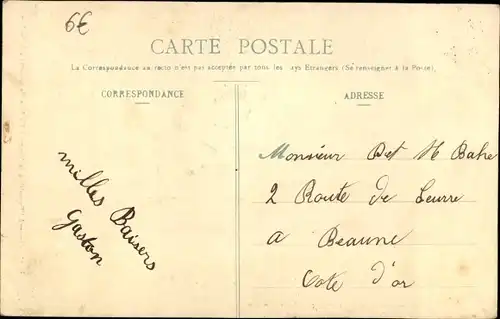 6€
CARTE POSTALE
La Correspondance au recto n'est pas acceptée par tous les pays Etrangers (Se renseigner à la Poste).
CORRESPONDANCE
ADRESSE
milles Baisers
Gaston
Monsieur
2 Route de
a Beaune
Cote d'or